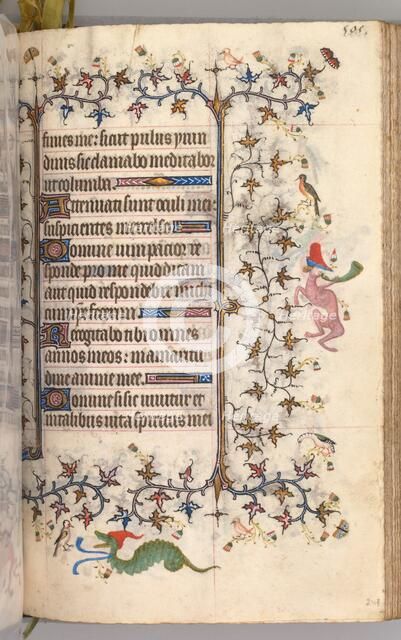 finies me: sicut pulus yrun
dinis sic clamabo meditabor
ut columba
Attenuati sunt oculi mei:
suspicientes in excelso
Domine uim pacior re
sponde pro me quid dicam
aut quid respondebit michi
cum ipse fecerim
Recogitabo tibi omnes
annos meos: in amaritu
dine anime mee
Domine si sic uiuitur et
in talibus uita spiritus mei
Heritage